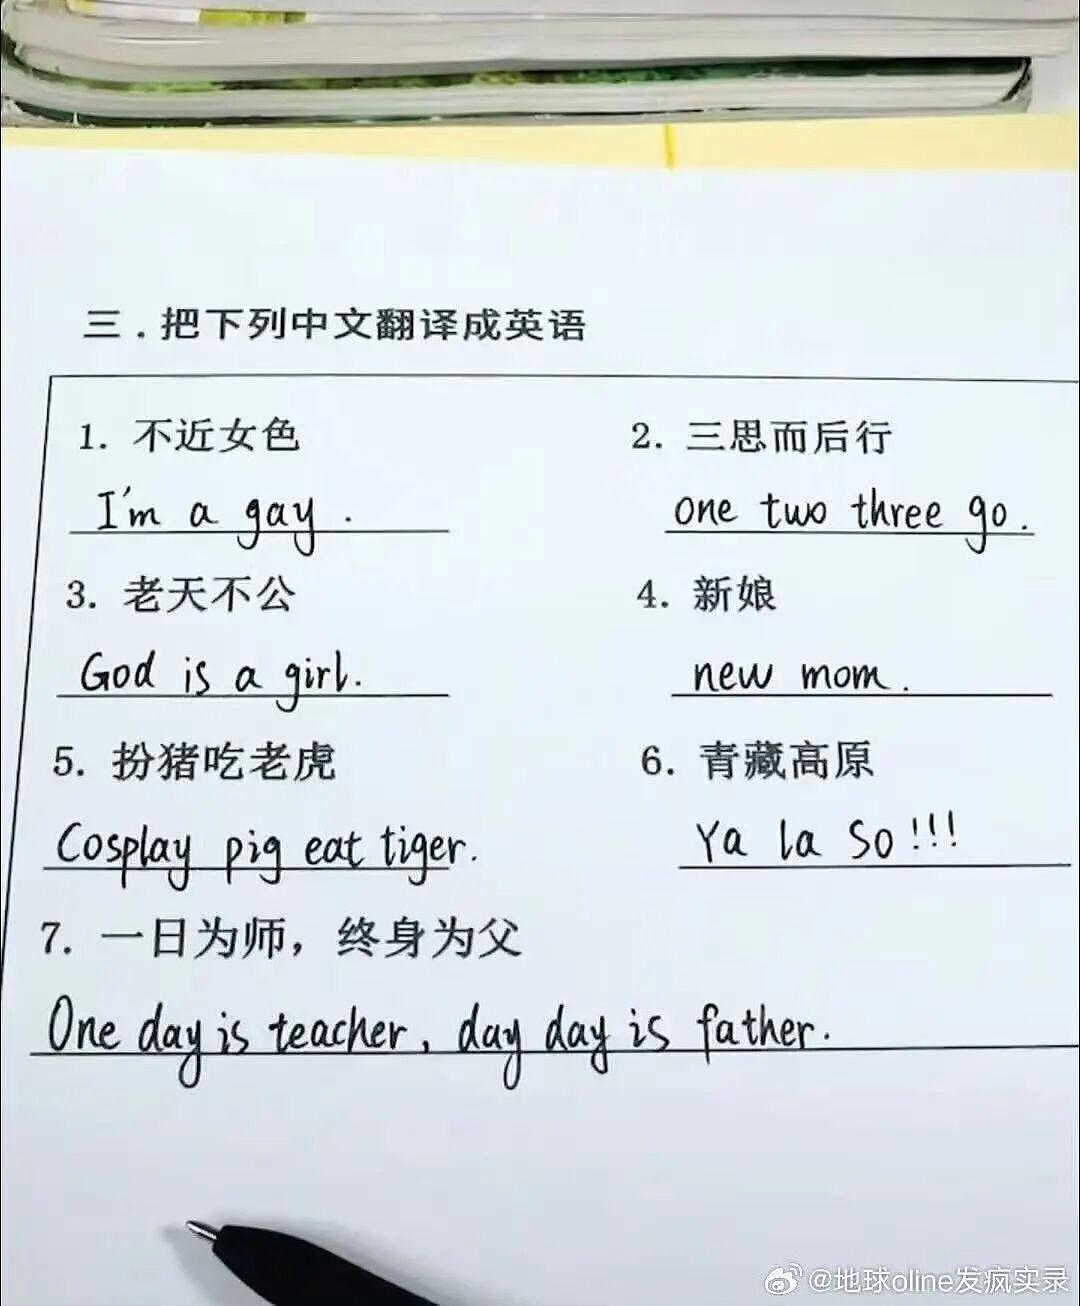 三.把下列中文翻译成英语
1. 不近女色
I'm a gay.
2. 三思而后行
one two three go.
3. 老天不公
God is a girl.
4. 新娘
new mom.
5. 扮猪吃老虎
Cosplay pig eat tiger.
6. 青藏高原
Ya la So!!!
7. 一日为师，终身为父
One day is teacher, day day is father.
@地球oline发疯实录